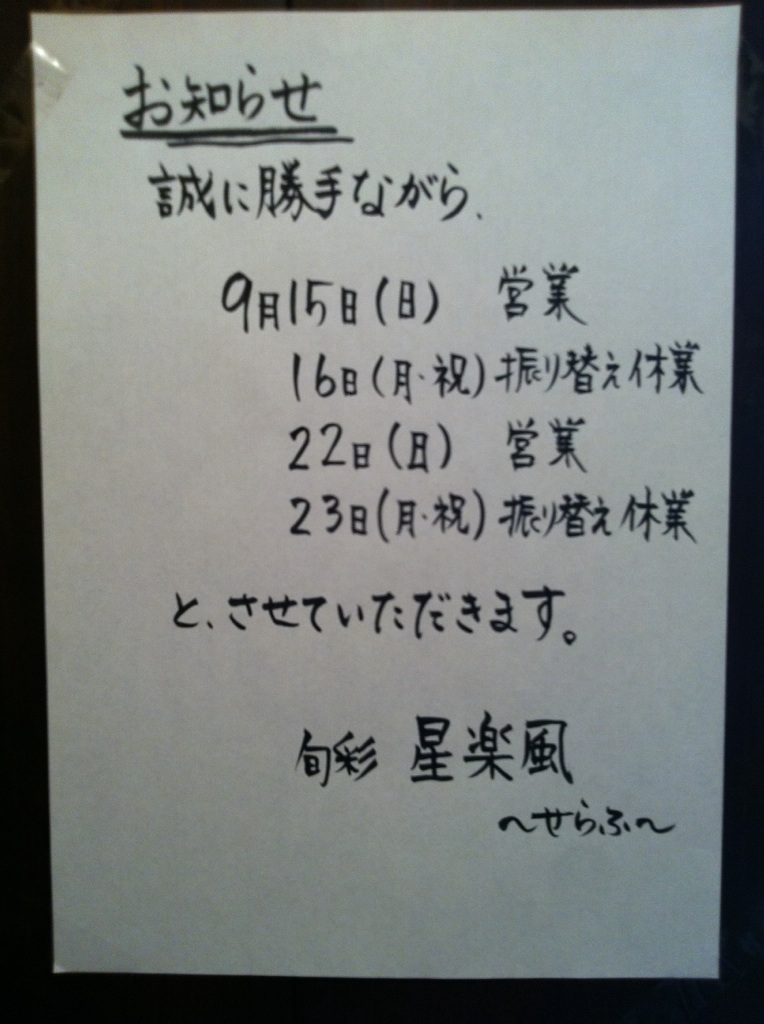 お知らせ
誠に勝手ながら、
9月15日(日) 営業
16日(月・祝)振り替え休業
22日(日) 営業
23日(月・祝)振り替え休業
と、させていただきます。
旬彩 星楽風
〜せらふ〜